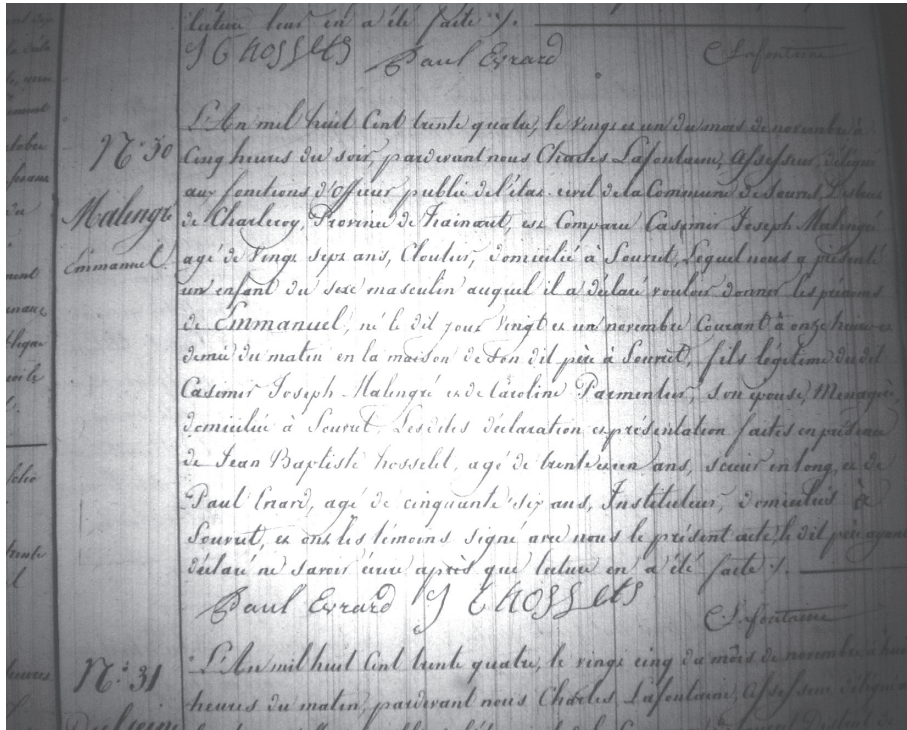 lecture leur en a été faite %.
J B hosselts Paul Evrard C Lafontaine
N.° 30
Malengré
Emmanuel.
L'An mil huit Cent trente quatre, le vingt et un du mois de novembre à
Cinq heures du soir, pardevant nous Charles Lafontaine, Assesseur, délégué
aux fonctions d'Officier public de l'état civil de la Commune de Souvret, District
de Charleroy, Province de hainaut, est Comparu Casimir Joseph Malengré
agé de vingt sept ans, Cloutier, domicilié à Souvret, Lequel nous a présenté
un enfant du sexe masculin auquel il a déclaré vouloir donner les prénoms
de Emmanuel, né le dit jour vingt et un novembre Courant à onze heures et
demie du matin en la maison de son dit père à Souvret, fils légitime du dit
Casimir Joseph Malengré et de Caroline Parmentier, son épouse, Menagère,
domiciliée à Souvret. Les dites déclaration et présentation faites en présence
de Jean Baptiste hosselet, agé de trente et un ans, scieur en long, et de
Paul Evrard, agé de cinquante six ans, Instituteur, domiciliés à
Souvret, et ont les témoins signé avec nous le présent acte, le dit père ayant
déclaré ne savoir écrire après que lecture en a été faite %.
Paul Evrard J B hosselts C Lafontaine
N.° 31
L'An mil huit Cent trente quatre, le vingt cinq du mois de novembre à huit
heures du matin, pardevant nous Charles Lafontaine, Assesseur délégué